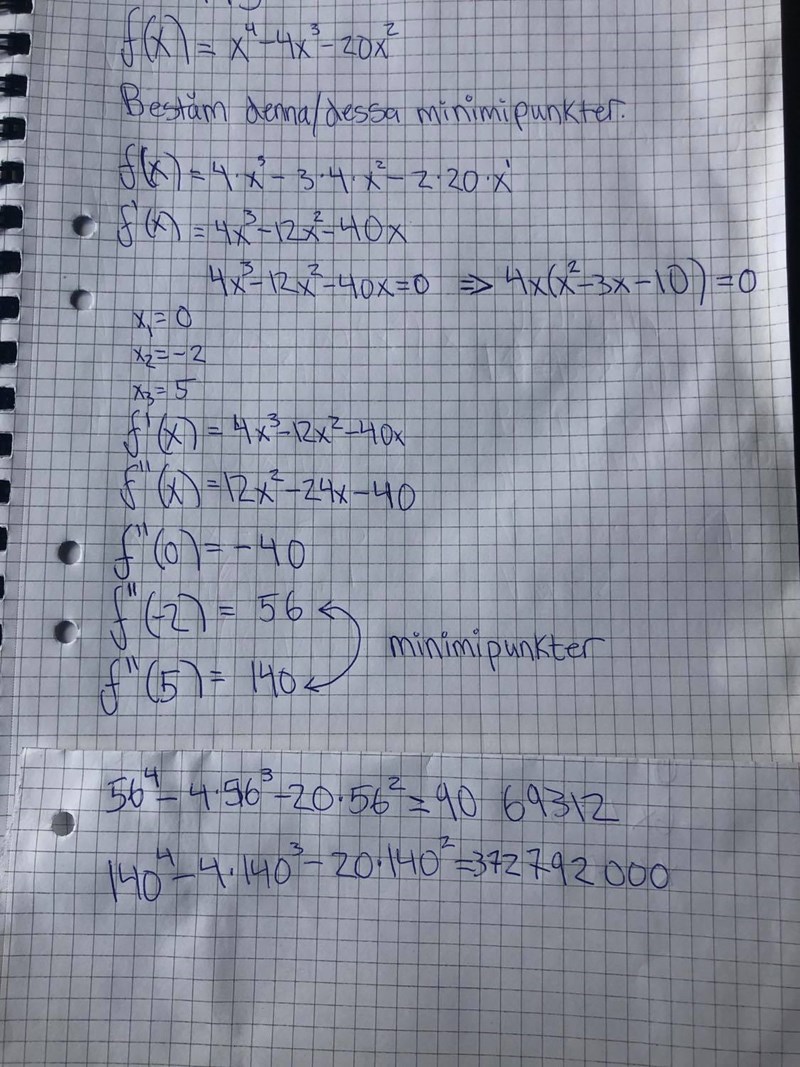 f(x) = x⁴-4x³-20x²
Bestäm denna/dessa minimipunkter.
f'(x) = 4·x³ - 3·4·x² - 2·20·x¹
f'(x) = 4x³-12x²-40x
4x³-12x²-40x=0 => 4x(x²-3x-10)=0
x₁=0
x₂=-2
x₃=5
f'(x) = 4x³-12x²-40x
f''(x) = 12x²-24x-40
f''(0) = -40
f''(-2) = 56
minimipunkter
f''(5) = 140
56⁴ - 4·56³ - 20·56² = 90 69312
140⁴ - 4·140³ - 20·140² = 372792000